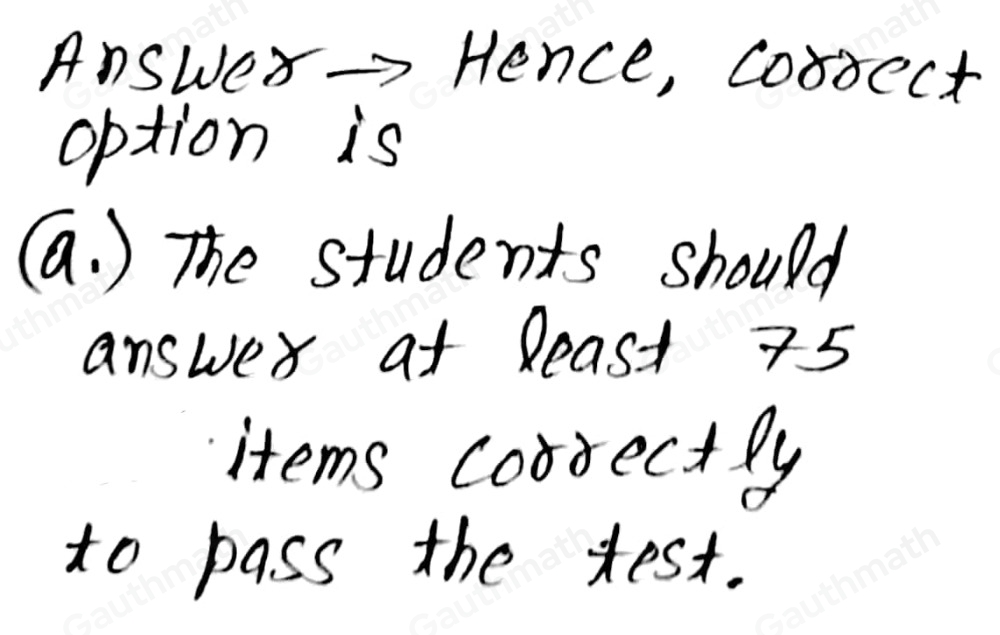 Answer → Hence, correct
option is
(a.) The students should
answer at least 75
items correctly
to pass the test.